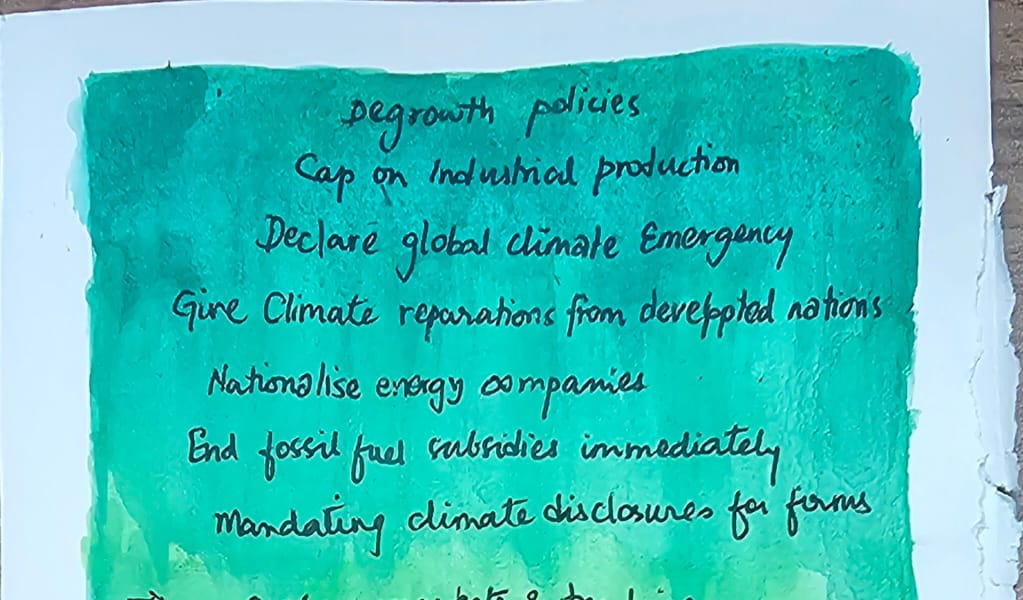 Degrowth policies
Cap on Industrial production
Declare global climate Emergency
Give Climate reparations from develppted nations
Nationalise energy companies
End fossil fuel subsidies immediately
Mandating climate disclosures for forms